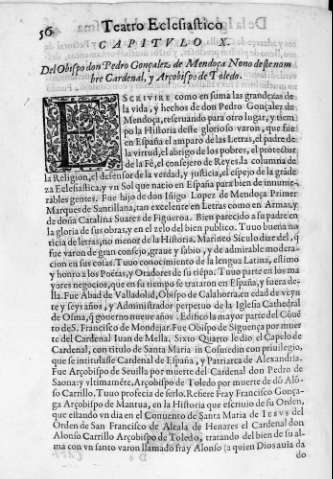 56
Teatro Eclesiastico
CAPITVLO X.
Del Obispo don Pedro Gonçalez de Mendoça Nono deste nom
bre Cardenal, y Arçobispo de Toledo.
ESCRIVIRE como en suma las grandezas de
la vida, y hechos de don Pedro Gonçalez de
Mendoça, reseruando para otro lugar, y tiem
po la Historia deste glorioso varon, que fue
en España el amparo de las Letras, el padre de
la virtud, el abrigo de los pobres, el protector
de la Fè, el consejero de Reyes, la columna de
la Religion, el defensor de la verdad, y justicia, el espejo de la grãde
za Eclesiastica, y vn Sol que nacio en España para bien de innume-
rables gentes. Fue hijo de don Iñigo Lopez de Mendoça Primer
Marques de Santillana, tan excelente en Letras como en Armas, y
de doña Catalina Suarez de Figueroa. Bien parecido a su padre en
la gloria de sus obras, y en el zelo del bien publico. Tuuo buena no
ticia de letras, no menor de la Historia. Marineo Siculo dize del, q̃
fue varon de gran consejo, graue y sabio, y de admirable modera-
cion en sus cosas. Tuuo conocimiento de la lengua Latina, estimo
y honro a los Poetas, y Oradores de su tiẽpo. Tuuo parte en los ma
yores negocios, que en su tiempo se trataron en España, y fuera de-
lla. Fue Abad de Valladolid, Obispo de Calahorra, en edad de veyn
te y seys años, y Administrador perpetuo de la Iglesia Cathedral
de Osma, q̃ gouerno nueue años. Edifico la mayor parte del Cõuẽ
to de S. Francisco de Mondejar. Fue Obispo de Siguença por muer
te del Cardenal Iuan de Mella. Sixto Quarto le dio el Capelo de
Cardenal, con titulo de Santa Maria in Cosmedin con priuilegio,
que se intitulasse Cardenal de España, y Patriarca de Alexandria.
Fue Arçobispo de Seuilla por muerte del Cardenal don Pedro de
Saona: y vltimamẽte, Arçobispo de Toledo por muerte de dõ Alõ-
so Carrillo. Tuuo profecia de serlo. Refiere Fray Francisco Gonça-
ga Arçobispo de Mantua, en la Historia que escriuio de su Orden,
que estando vn dia en el Conuento de Santa Maria de IESVS del
Orden de San Francisco de Alcala de Henares el Cardenal don
Alonso Carrillo Arçobispo de Toledo, tratando del bien de su al-
ma con vn santo varon llamado fray Alonso (a quien Dios auia da
do